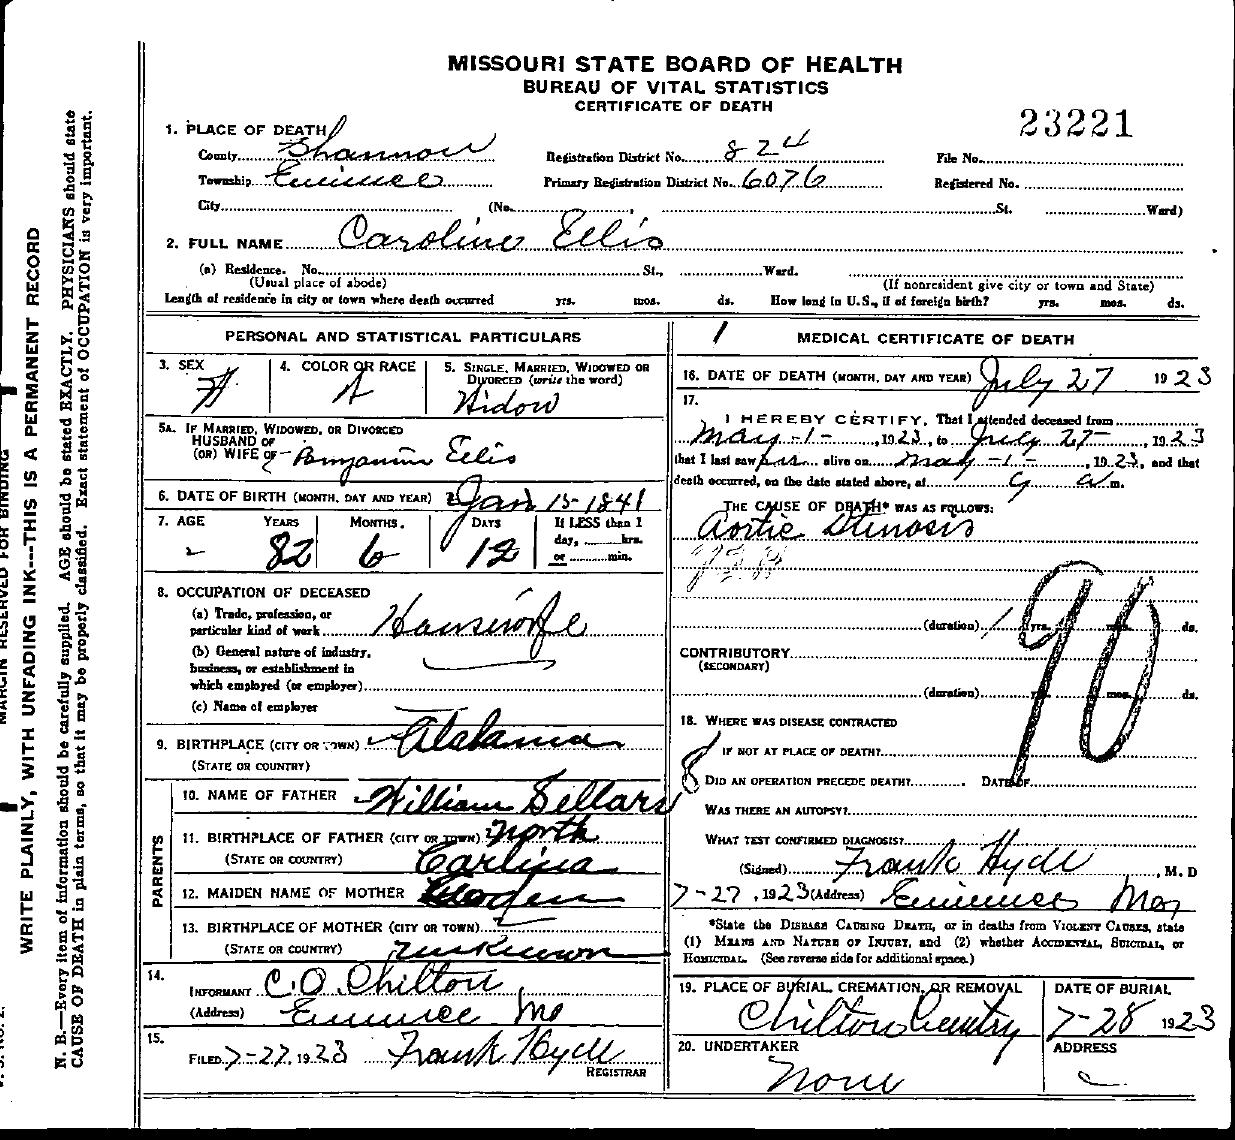 MISSOURI STATE BOARD OF HEALTH
BUREAU OF VITAL STATISTICS
CERTIFICATE OF DEATH
23221
1. PLACE OF DEATH
County Shannon Registration District No. 824 File No.
Township Eminence Primary Registration District No. 6076 Registered No.
City (No. , St. Ward)
2. FULL NAME Caroline Ellis
(a) Residence. No. St., Ward.
(Usual place of abode) (If nonresident give city or town and State)
Length of residence in city or town where death occurred yrs. mos. ds. How long in U.S., if of foreign birth? yrs. mos. ds.
PERSONAL AND STATISTICAL PARTICULARS
3. SEX 4. COLOR OR RACE 5. SINGLE, MARRIED, WIDOWED OR
DIVORCED (write the word)
Widow
5A. IF MARRIED, WIDOWED, OR DIVORCED
HUSBAND OF
(OR) WIFE OF Ellis
6. DATE OF BIRTH (MONTH, DAY AND YEAR) Jan 15-1841
7. AGE YEARS MONTHS. DAYS If LESS than 1
day, hrs.
or min.
82 6 12
8. OCCUPATION OF DECEASED
(a) Trade, profession, or
particular kind of work Housewife
(b) General nature of industry,
business, or establishment in
which employed (or employer)
(c) Name of employer
9. BIRTHPLACE (CITY OR TOWN) Alabama
(STATE OR COUNTRY)
PARENTS
10. NAME OF FATHER William Sellars
11. BIRTHPLACE OF FATHER (CITY OR TOWN) North
(STATE OR COUNTRY) Carlina
12. MAIDEN NAME OF MOTHER
13. BIRTHPLACE OF MOTHER (CITY OR TOWN)
(STATE OR COUNTRY) unknown
14.
INFORMANT C.O. Chilton
(Address) Eminence Mo
15.
FILED 7-27, 1923 Frank Hyde
REGISTRAR
MEDICAL CERTIFICATE OF DEATH
16. DATE OF DEATH (MONTH, DAY AND YEAR) July 27 1923
17.
I HEREBY CERTIFY, That I attended deceased from
May -1- , 1923, to July 27- , 1923
that I last saw her alive on May -1- , 1923, and that
death occurred, on the date stated above, at 9 a m.
THE CAUSE OF DEATH* WAS AS FOLLOWS:
Aortic Stenosis
90
(duration) yrs. mos. ds.
CONTRIBUTORY
(SECONDARY)
(duration) yrs. mos. ds.
18. WHERE WAS DISEASE CONTRACTED
IF NOT AT PLACE OF DEATH?
8
DID AN OPERATION PRECEDE DEATH? DATE OF
WAS THERE AN AUTOPSY?
WHAT TEST CONFIRMED DIAGNOSIS?
(Signed) Frank Hyde , M. D
7-27 , 1923 (Address) Eminence Mo
*State the DISEASE CAUSING DEATH, or in deaths from VIOLENT CAUSES, state
(1) MEANS AND NATURE OF INJURY, and (2) whether ACCIDENTAL, SUICIDAL, or
HOMICIDAL. (See reverse side for additional space.)
19. PLACE OF BURIAL, CREMATION, OR REMOVAL DATE OF BURIAL
Chilton Cemetry 7-28 1923
20. UNDERTAKER ADDRESS
None
MARGIN RESERVED FOR BINDING
WRITE PLAINLY, WITH UNFADING INK---THIS IS A PERMANENT RECORD
N. B.—Every item of information should be carefully supplied. AGE should be stated EXACTLY. PHYSICIANS should state
CAUSE OF DEATH in plain terms, so that it may be properly classified. Exact statement of OCCUPATION is very important.